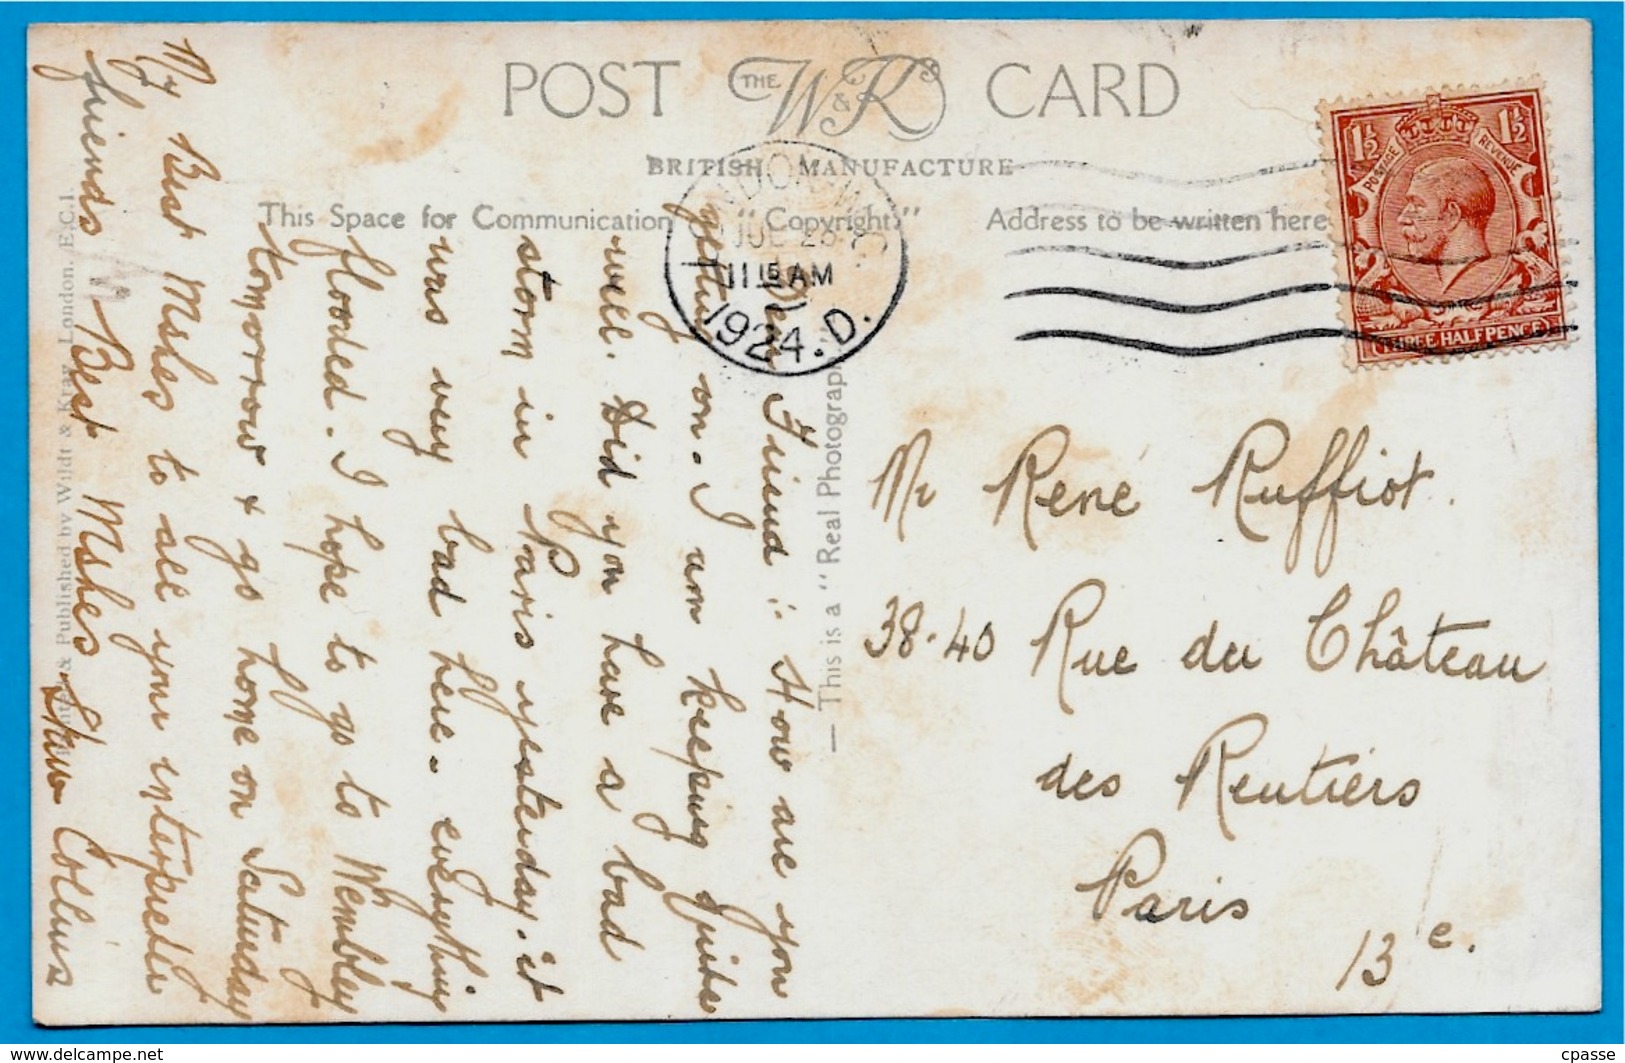 POST THE W & K CARD
BRITISH MANUFACTURE
This Space for Communication
"Copyright"
Address to be written here
LONDON
JUL 26
11 15 AM
1924. D.
POSTAGE REVENUE
1½ 1½
THREE HALFPENCE
Mr René Ruffiot.
38-40 Rue du Château
des Rentiers
Paris
13e.
— This is a "Real Photograph"
Dear Friend:- How are you
getting on. I am keeping quite
well. Did you have a bad
storm in Paris yesterday. it
was very bad here. everything
flooded. I hope to go to Wembley
tomorrow & go home on Saturday
My Best Wshes to all your interpreter
friends Best Wshes
Collins
& Published by Wildt & Kray, London, E.C.1.
© cpasse
delcampe.net